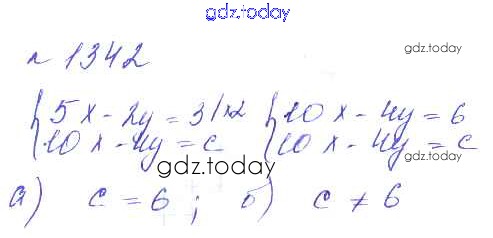 gdz.today
n 1342
gdz.today
{5x - 2y = 3 | x2 {10x - 4y = 6
10x - 4y = c 10x - 4y = c
gdz.today
а) c = 6 ; б) c ≠ 6